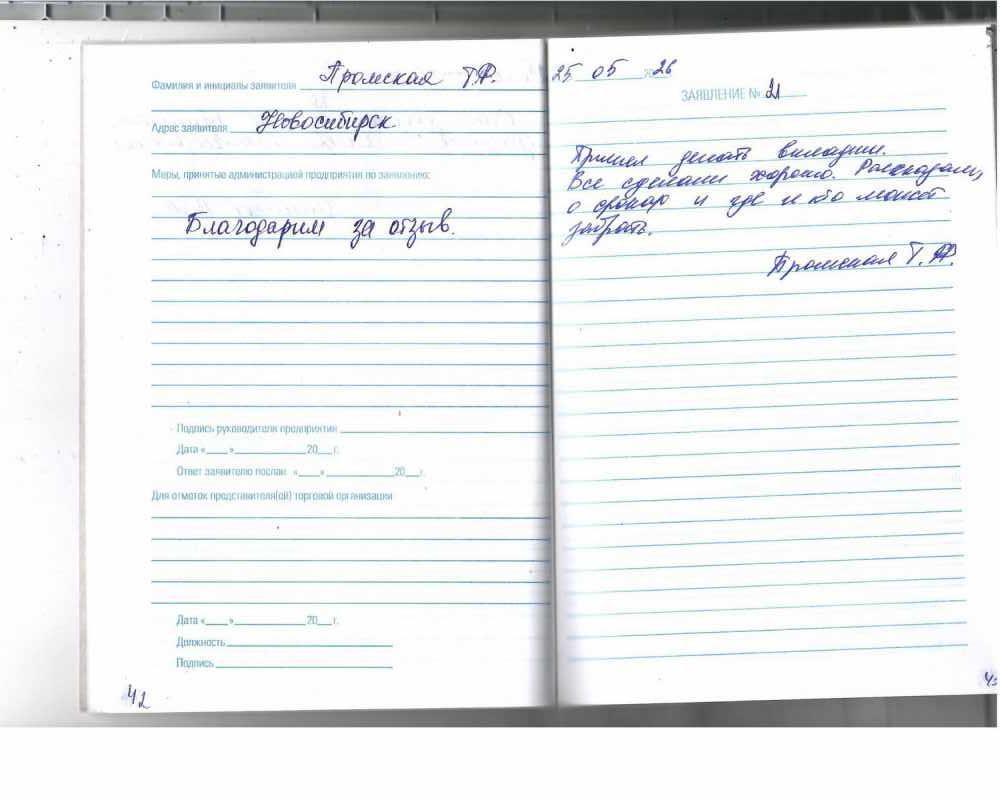 Фамилия и инициалы заявителя Промская Т.Ф.
Адрес заявителя Новосибирск
Меры, принятые администрацией предприятия по заявлению:
Благодарим за отзыв.
Подпись руководителя предприятия
Дата «___»____________20___г.
Ответ заявителю послан «___»____________20___г.
Для отметок представителя(ой) торговой организации
Дата «___»____________20___г.
Должность
Подпись
42
25 05 26
ЗАЯВЛЕНИЕ № 21
делать
Все сделали хорошо. Рассказали,
о сроках и где и кто может
забрать.
Промская Т.Ф.